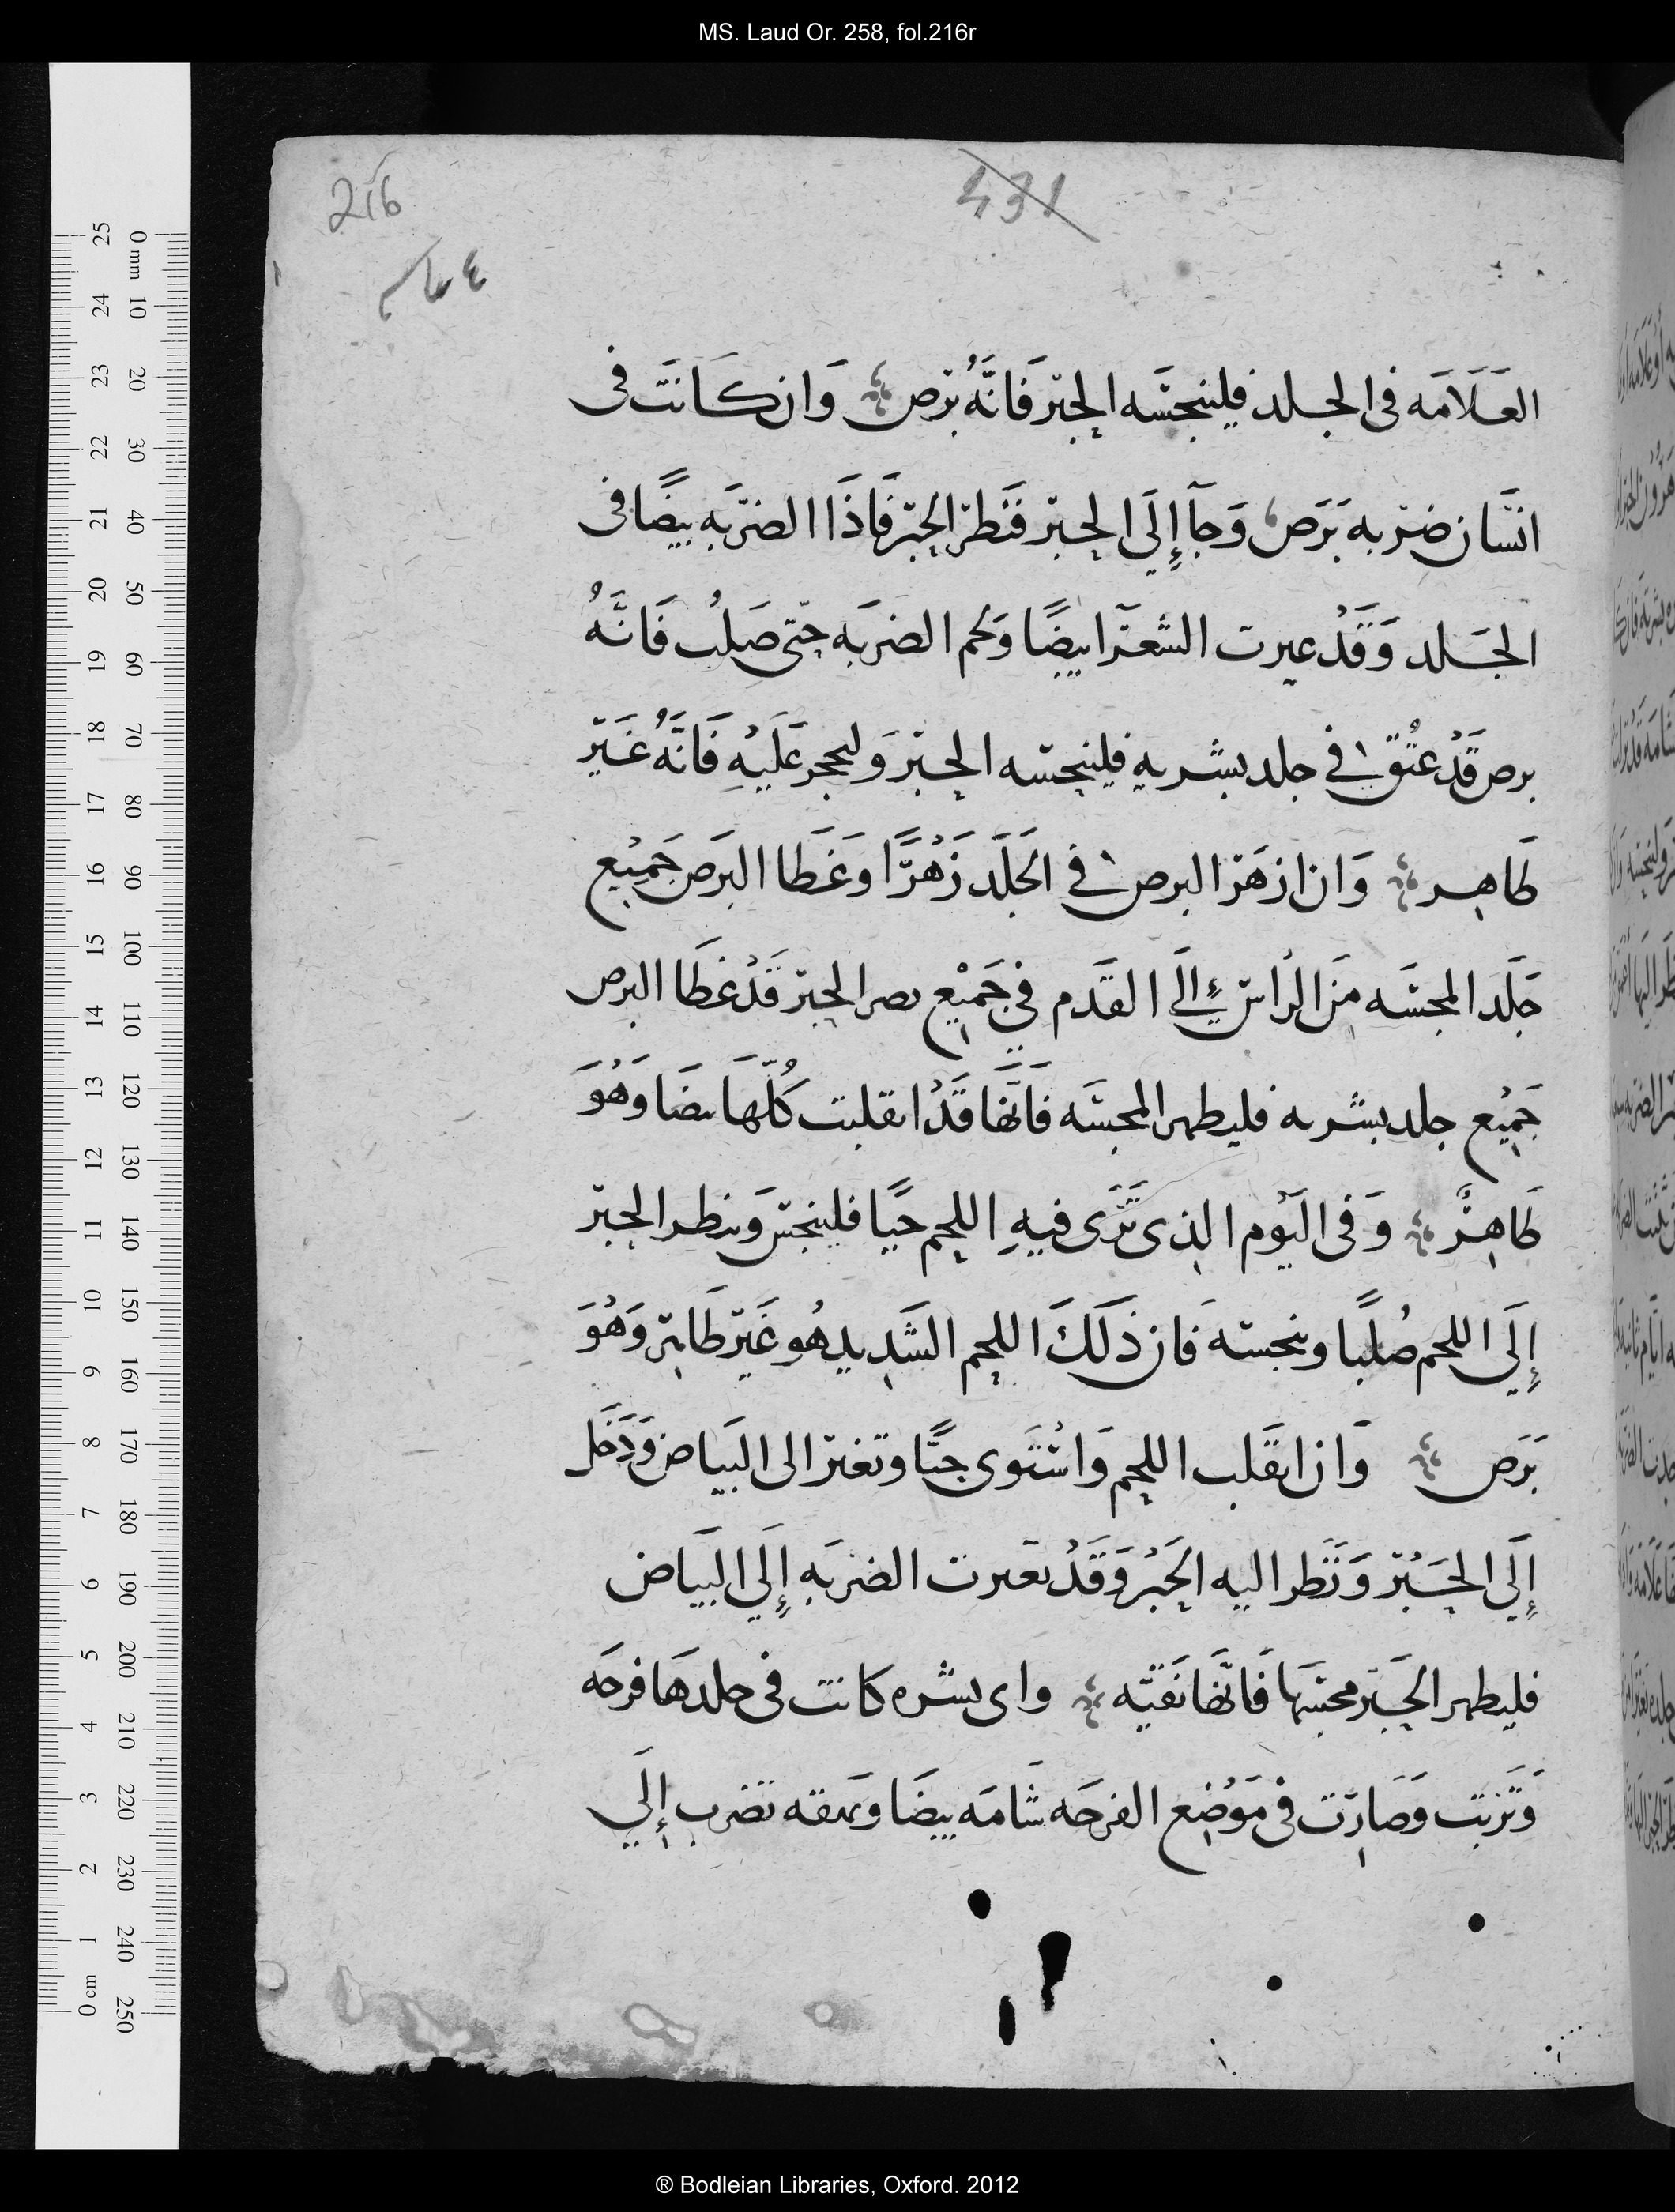 MS. Laud Or. 258, fol.216r
216
431
العَلَامَه فى الجلد فلينجسَه الحِبَر فَانَّهُ بَرَص وَان كَانَت فى
انسَان ضربه بَرَص وَجآ إِلَى الحِبَر فَنَظر الحِبَر فَاذَا الضربَه بيضًا فى
الجَلد وَقَدْ غيرت الشعَر ابيضًا وَلحم الضربَه حتى صَلُب فَانَّهُ
برص قَدْ عتُق فى جلد بشريه فلينجسه الحِبَر وَليحجر عَلَيْهِ فَانَّهُ غَير
طَاهِر وَان ازهَر البرص فى الجَلَد زَهْرًا وَغَطَا البَرَص جَمِيْع
جَلَد المجسَه مِنَ الرأس إِلَى القَدَم فى جَمِيْع بصر الحِبَر قَدْ غطَا البرص
جَمِيْع جلد بشريه فليطهر المجسَه فَانَّهَا قَدْ انقلبت كُلّهَا بيضَا وَهُوَ
طَاهِرٌ وَفى اليَوْم الذى تَرَى فيهِ اللحم حَيًا فلينجس وَينظر الحِبَر
إِلَى اللحم صُلبًا وينجسَه فان ذَلَكَ اللحم الشَدِيد هُو غَير طَاهِر وَهُوَ
بَرَص وَان انقَلب اللحم وَاسْتَوى حيًّا وتغير الى البَيَاض وَدَخَل
إِلَى الحَبْر وَنَظر اليه الحَبْر وَقَدْ تغيرت الضربَهِ إِلَى البَيَاض
فليطهر الحَبَر مجسَهَا فَانَّهَا نَقيَّه واى بشره كانت فى جلدهَا قرحَه
وَتَربَت وَصَارَت فى مَوْضِع القرحَه شَامَه بيضَا وَبهقه تضرب إِلَى
® Bodleian Libraries, Oxford. 2012